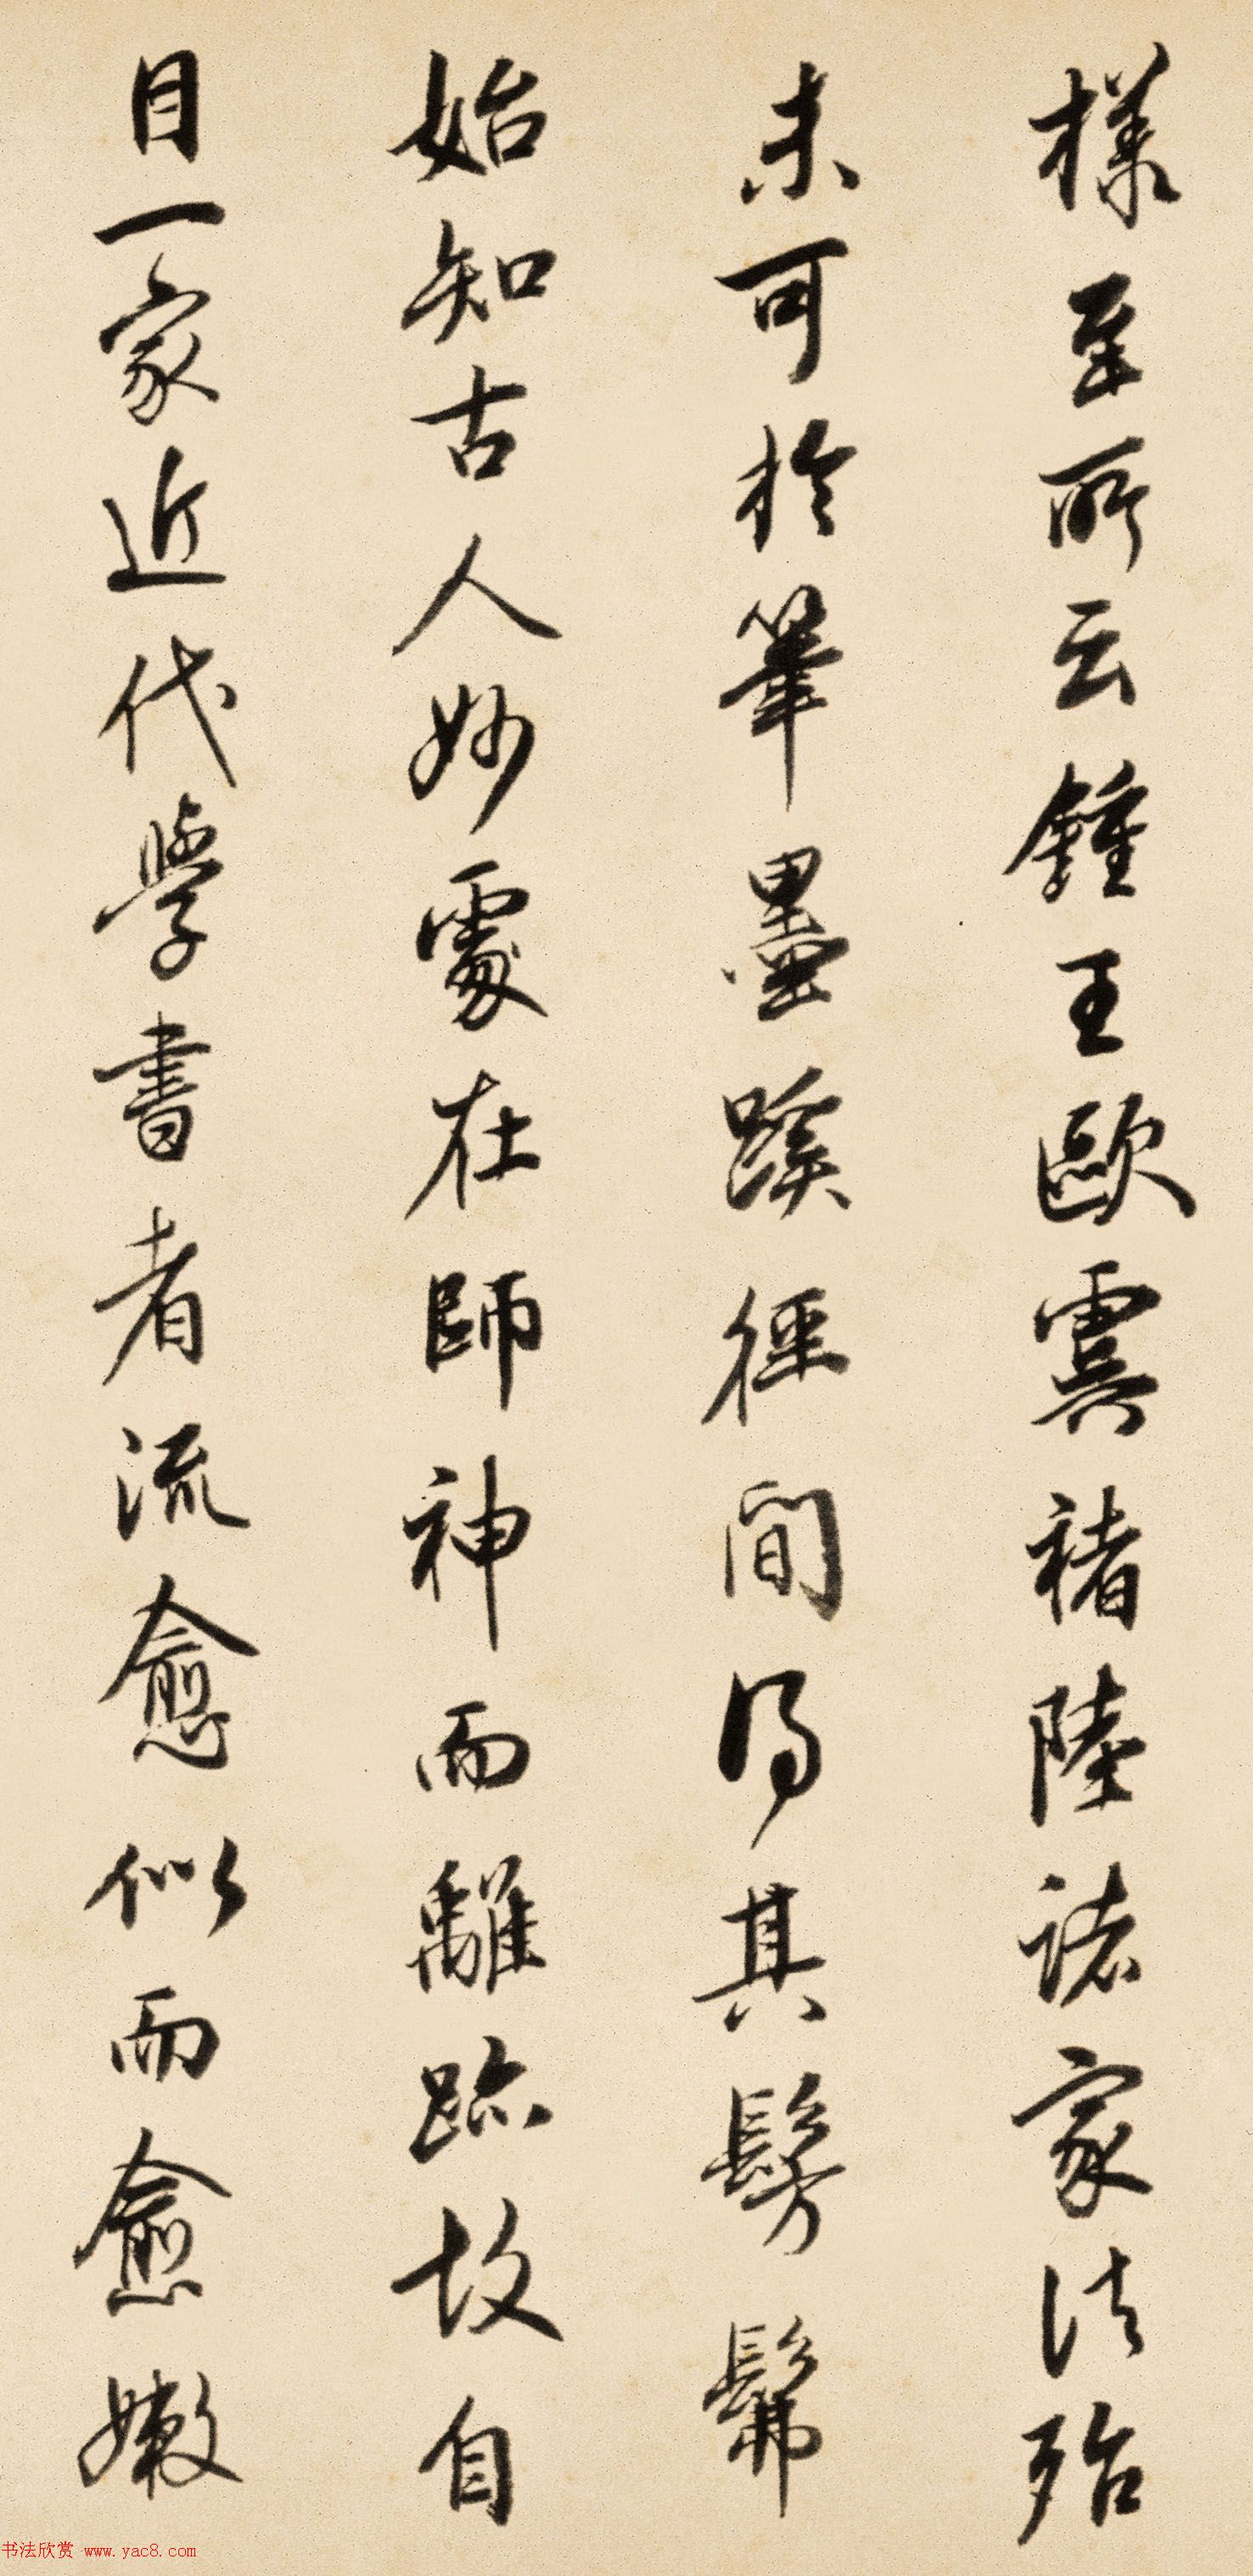 樣至所云鍾王歐虞褚陸諸家法殆
未可於筆墨蹊徑間得其髣髴
始知古人妙處在師神而離跡故自
目一家近代學書者流愈似而愈嫩
书法欣赏 www.yac8.com